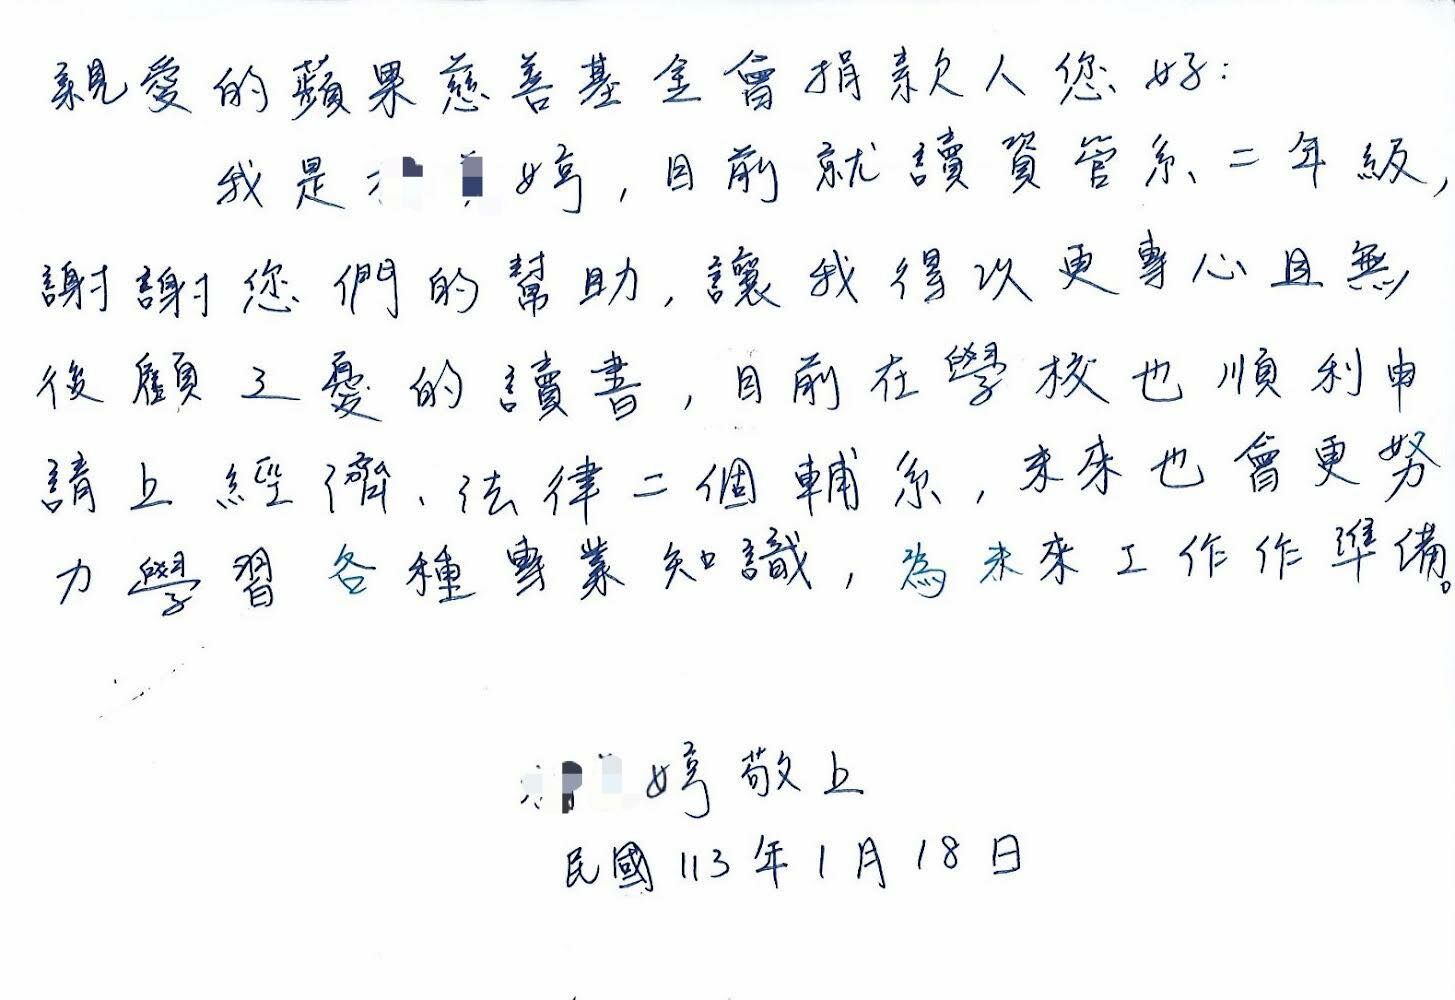 親愛的蘋果慈善基金會捐款人您好:
我是 婷,目前就讀資管系二年級,
謝謝您們的幫助,讓我得以更專心且無
後顧之憂的讀書,目前在學校也順利申
請上經濟、法律二個輔系,未來也會更努
力學習各種專業知識,為未來工作作準備。
婷敬上
民國113年1月18日